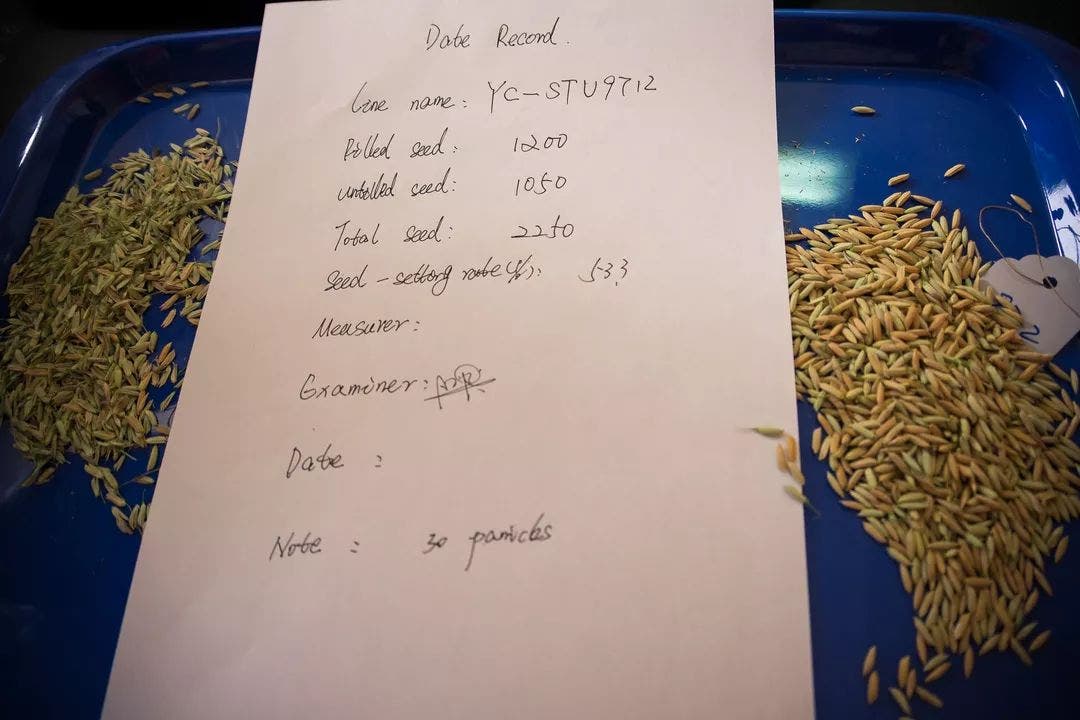 Date Record.
Line name: YC-STU9712
Filled seed: 1200
unfilled seed: 1050
Total seed: 2250
Seed-setting rate(%): 53.3
Measurer:
Examiner:
Date :
Note : 30 panicles